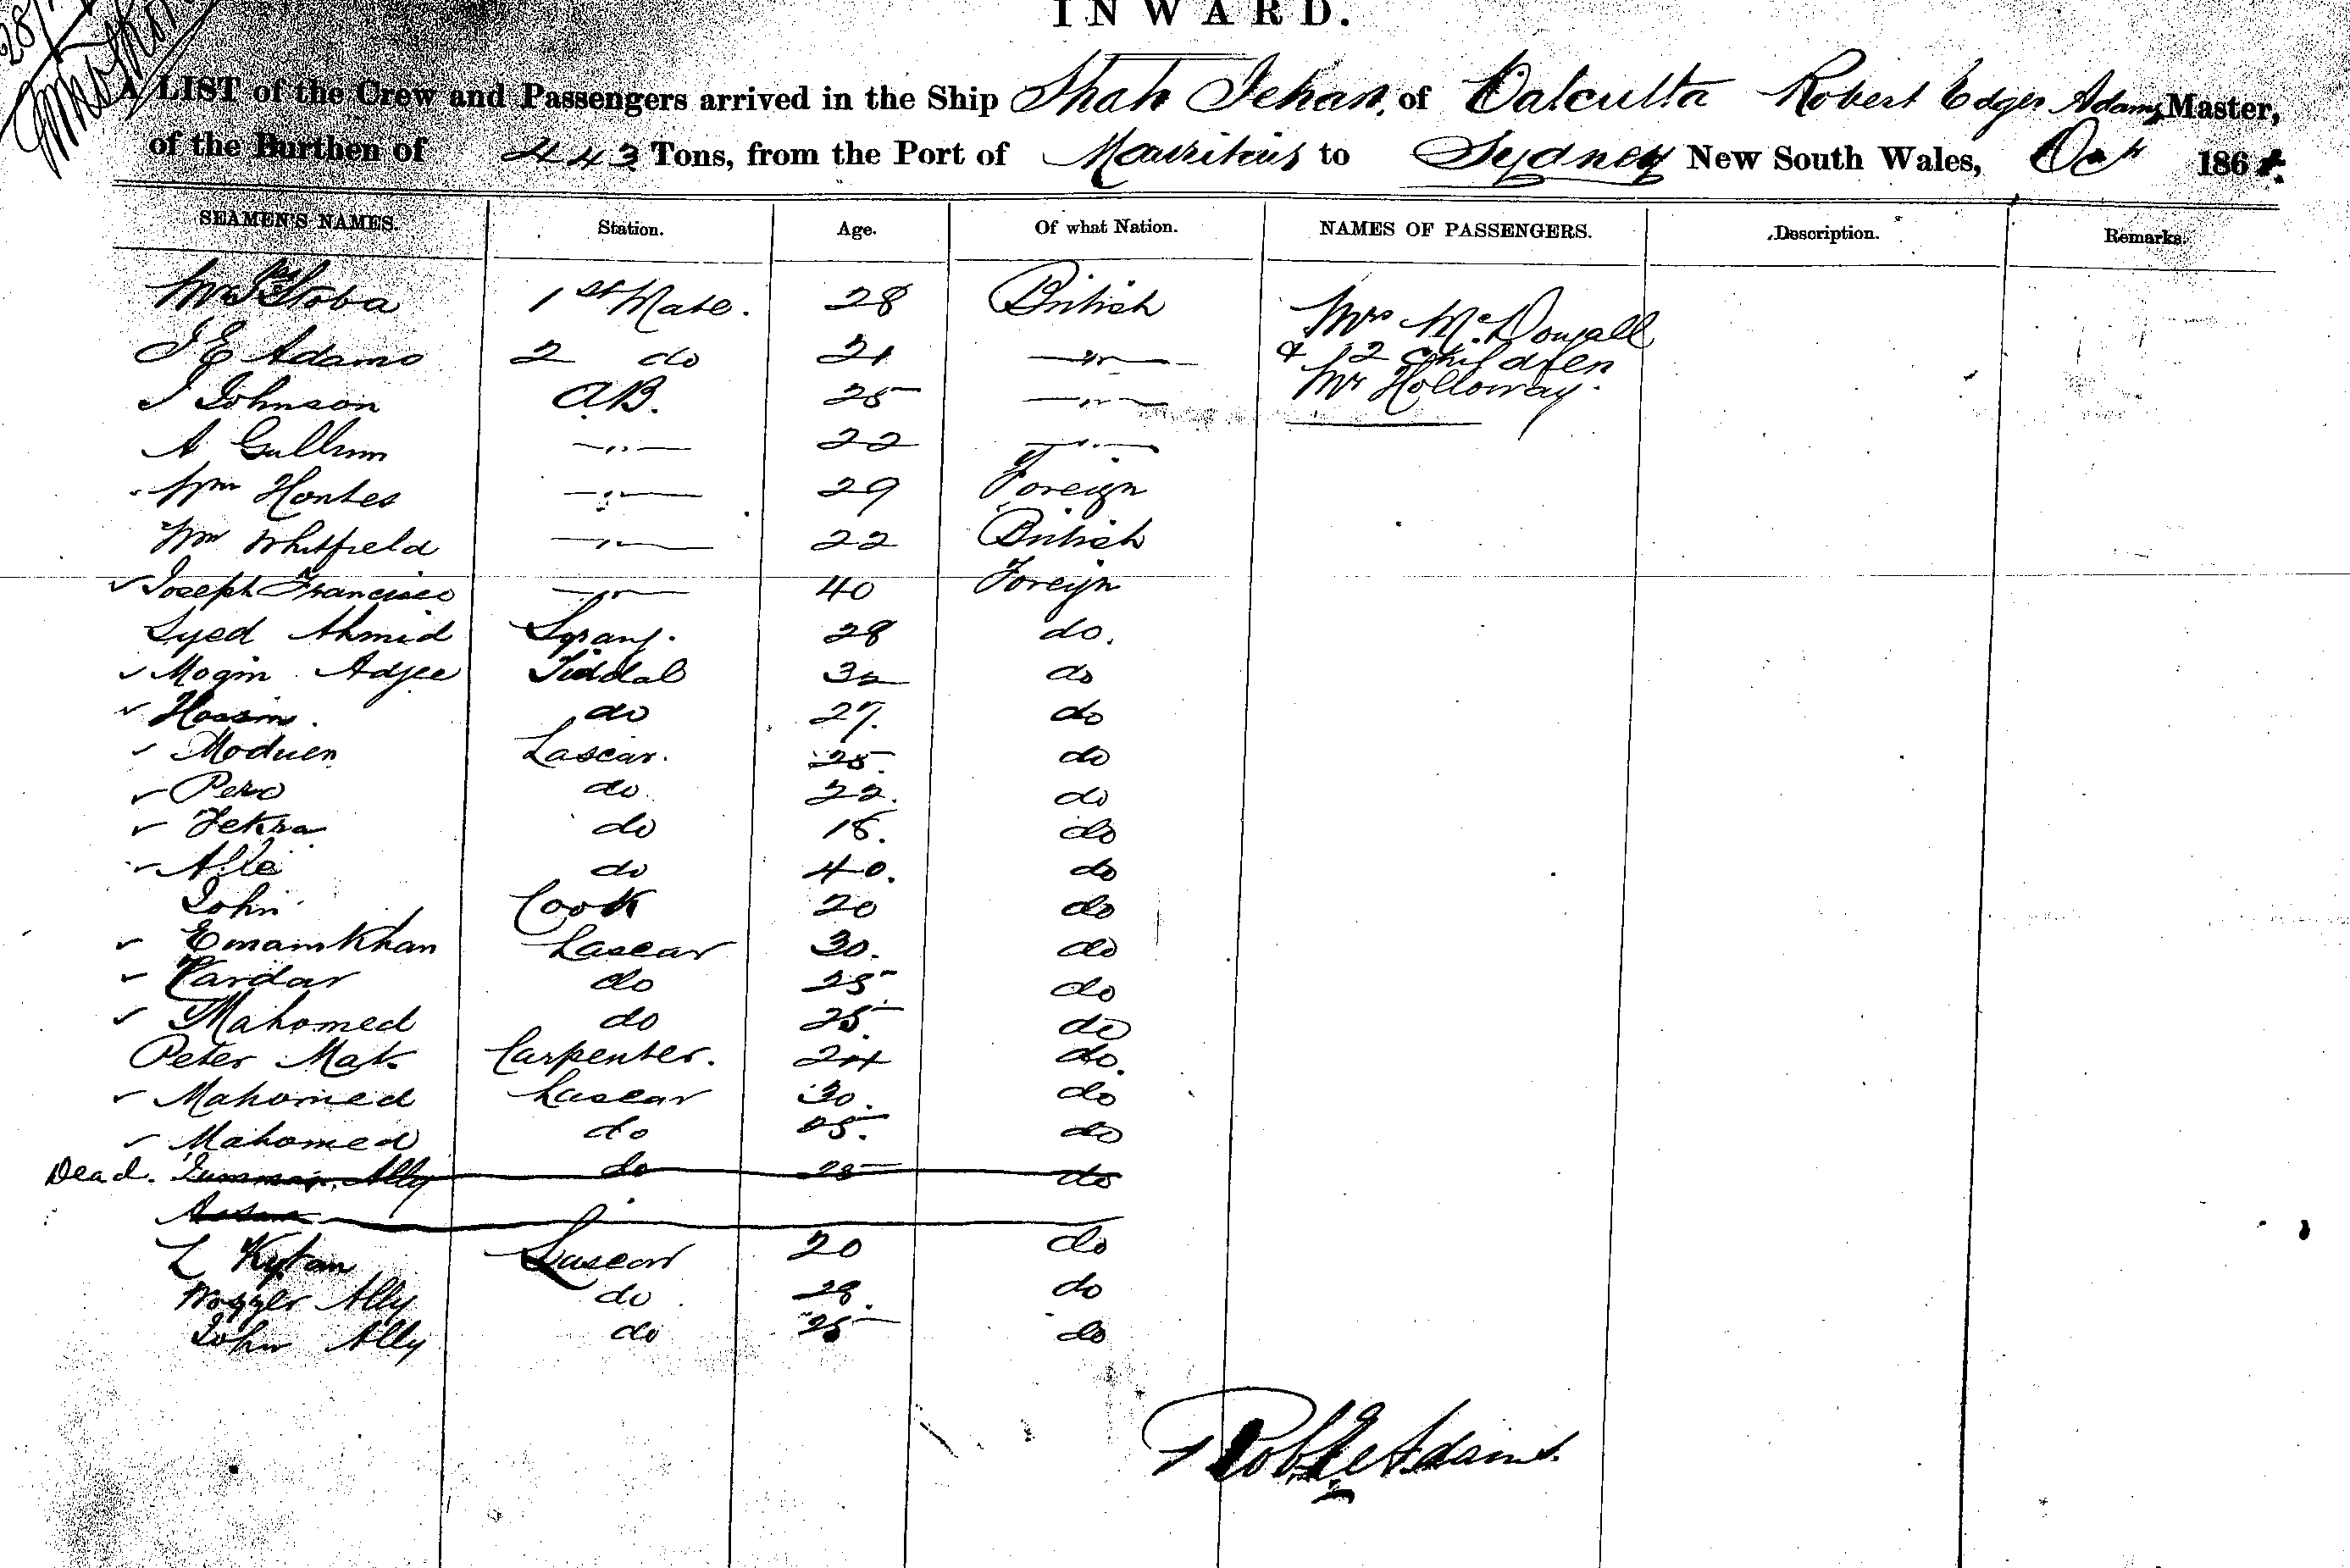 INWARD.
A LIST of the Crew and Passengers arrived in the Ship Shah Jehan. of Calcutta Robert Edger Adams, Master,
of the Burthen of 443 Tons, from the Port of Mauritius to Sydney New South Wales, Oct 186
SEAMEN'S NAMES. Station. Age. Of what Nation. NAMES OF PASSENGERS. Description. Remarks.
Stoba 1st Mate. 28 British Mrs McDougall
J E Adams 2 do 21 —"— & 2 Children
J Johnson A.B. 25 —"— Mr Holloway.
A Gullum —"— 22 —"—
Wm Hontes —"— 29 Foreign
Wm Whitfield —"— 22 British
✓ Joseph Francisco —"— 40 Foreign
Syed Ahmid Serang. 28 do.
✓ Mogin Adjee Tiddal 32 do
✓ Hossin. do 27. do
✓ Moduen Lascar. 25. do
✓ Pero do. 22. do
✓ Fekra do 18. do
✓ Alle do 40. do
John Cook 20 do
✓ Emamkhan Lascar 30. do
✓ Cardar do 25 do
✓ Mahomed do 25. do
Peter Mak Carpenter. 24 do.
✓ Mahomed Lascar 30. do
✓ Mahomed do 25. do
Dead. Ally do 25 do
L Kytan Lascar 20 do
Wozzer Ally do 28. do
John Ally do 25 do
Robt E Adams.